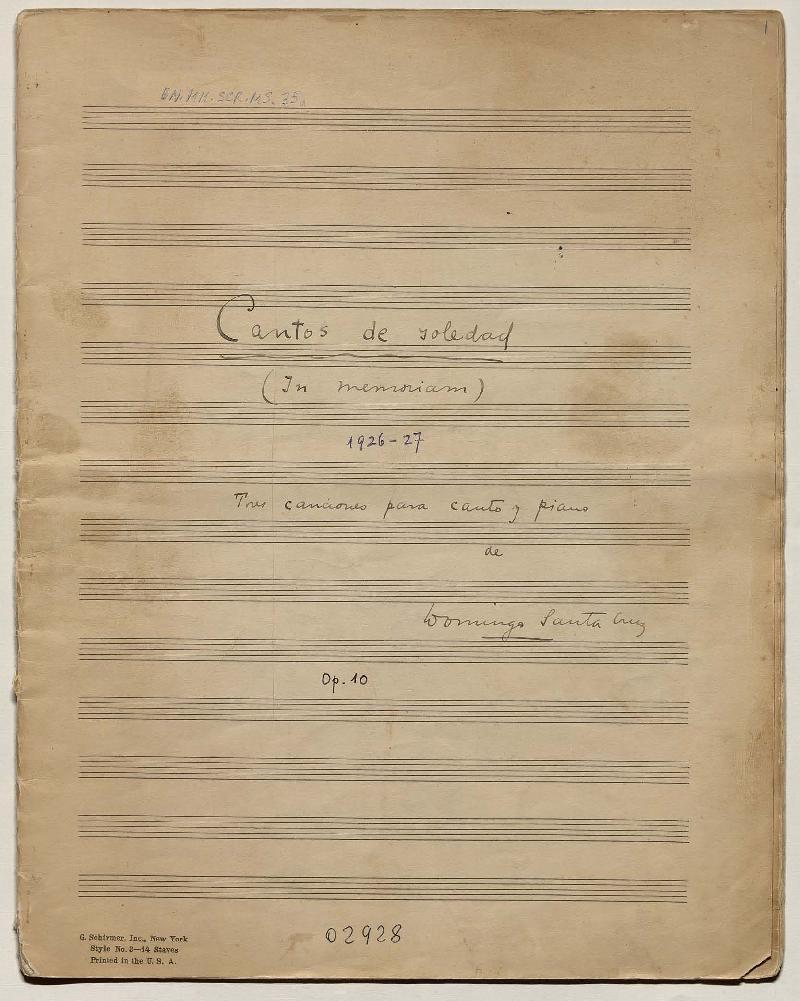 1
BN.MH.SCR.MS. 35a
Cantos de soledad
(In memoriam)
1926-27
Tres canciones para canto y piano
de
Domingo Santa Cruz
Op. 10
02928
G. Schirmer, Inc., New York
Style No. 3—14 Staves
Printed in the U. S. A.